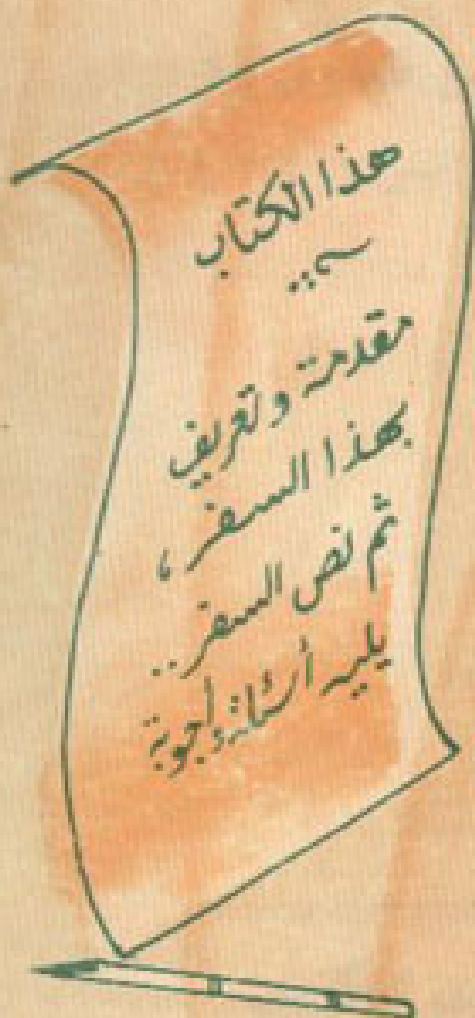 هذا الكتاب
..
مقدمة وتعريف
بهذا السفر ،
ثم نص السفر ..
يليه أسئلة وأجوبة